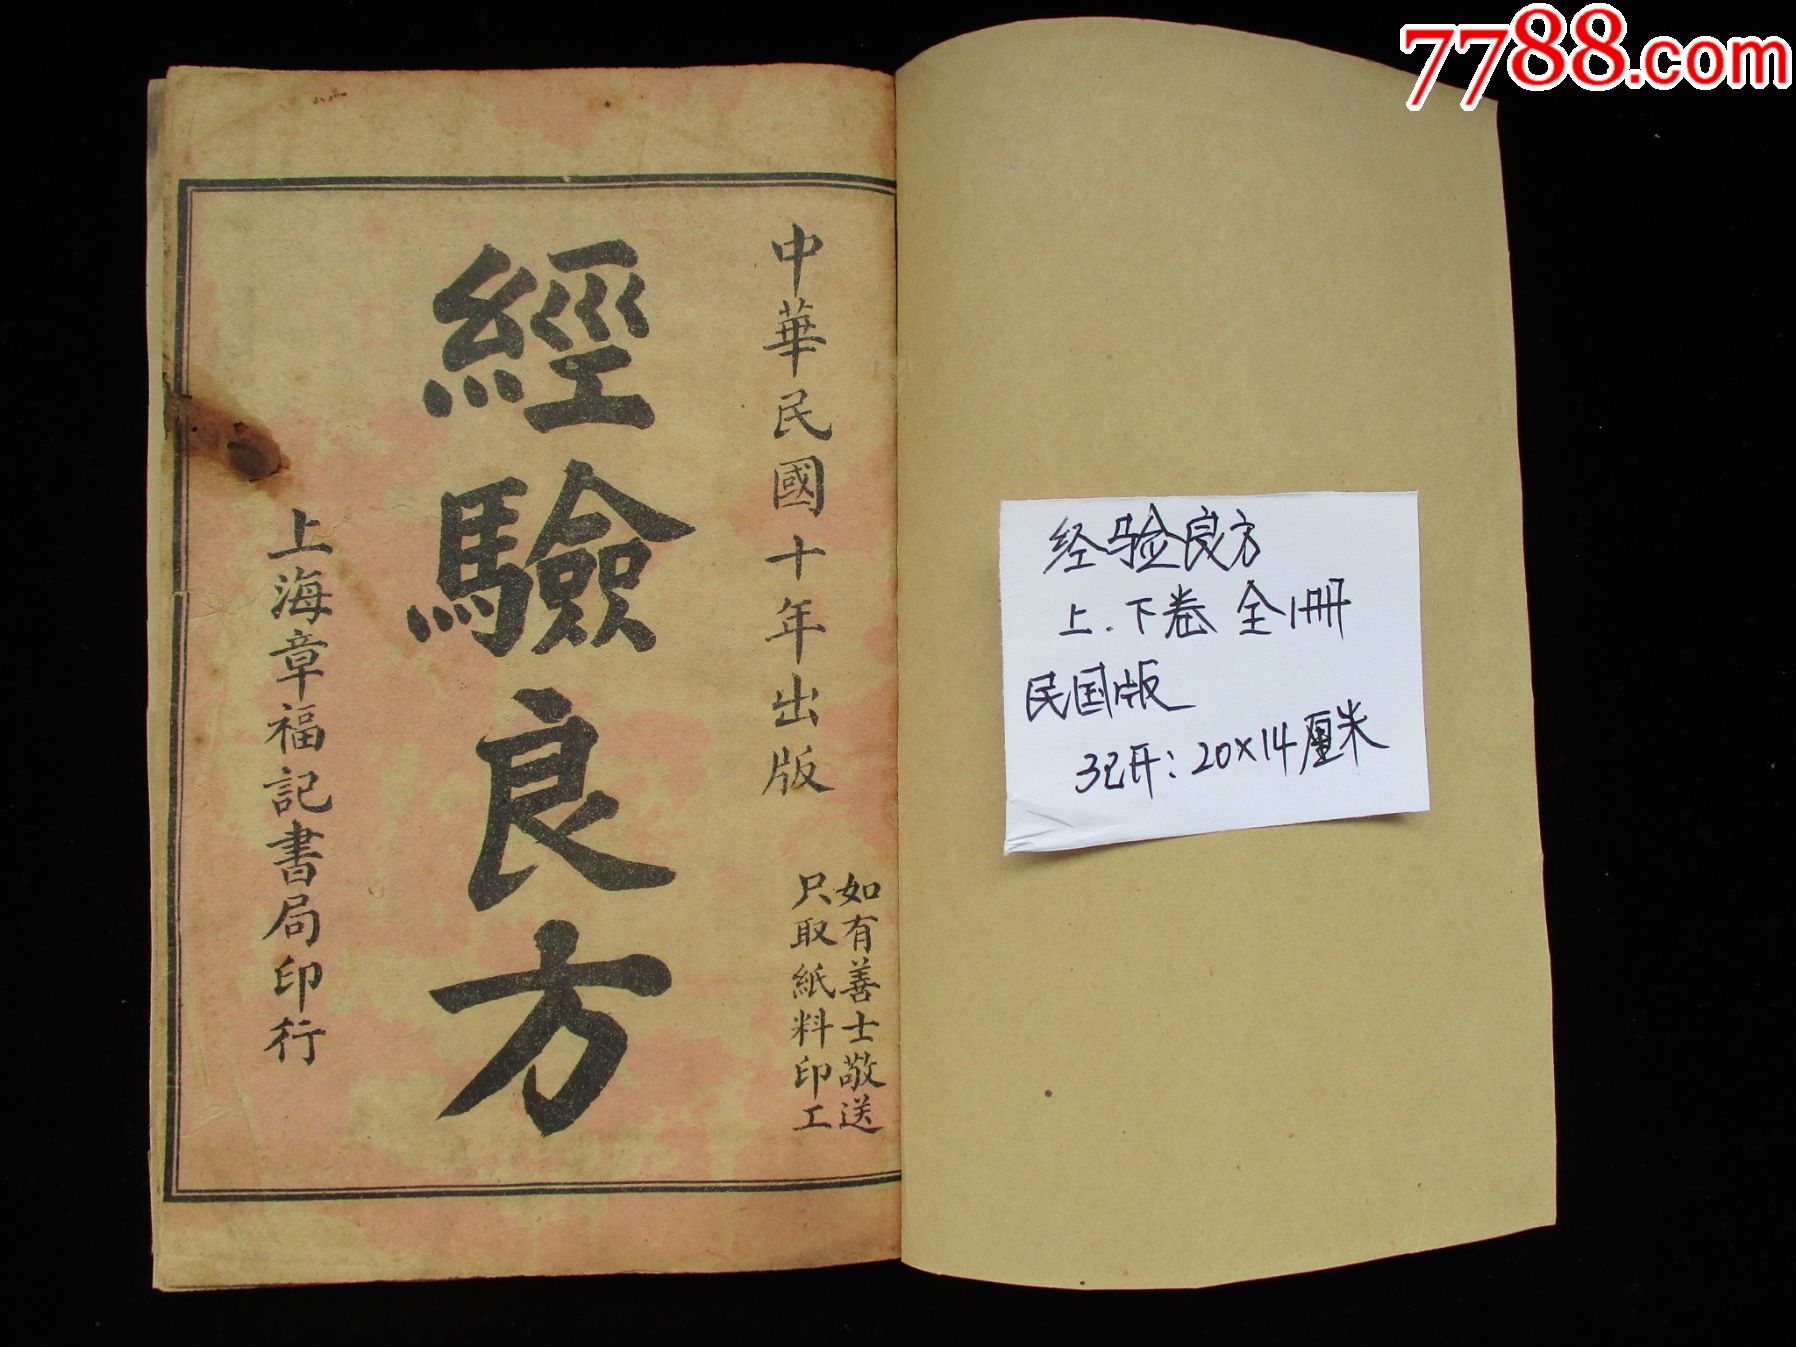 7788.com
中華民國十年出版
如有善士敬送
只取紙料印工
經驗良方
上海章福記書局印行
经验良方
上.下卷 全1册
民国版
32开：20×14厘米